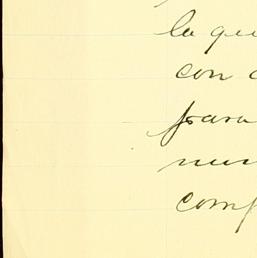 la que
con
para
comp